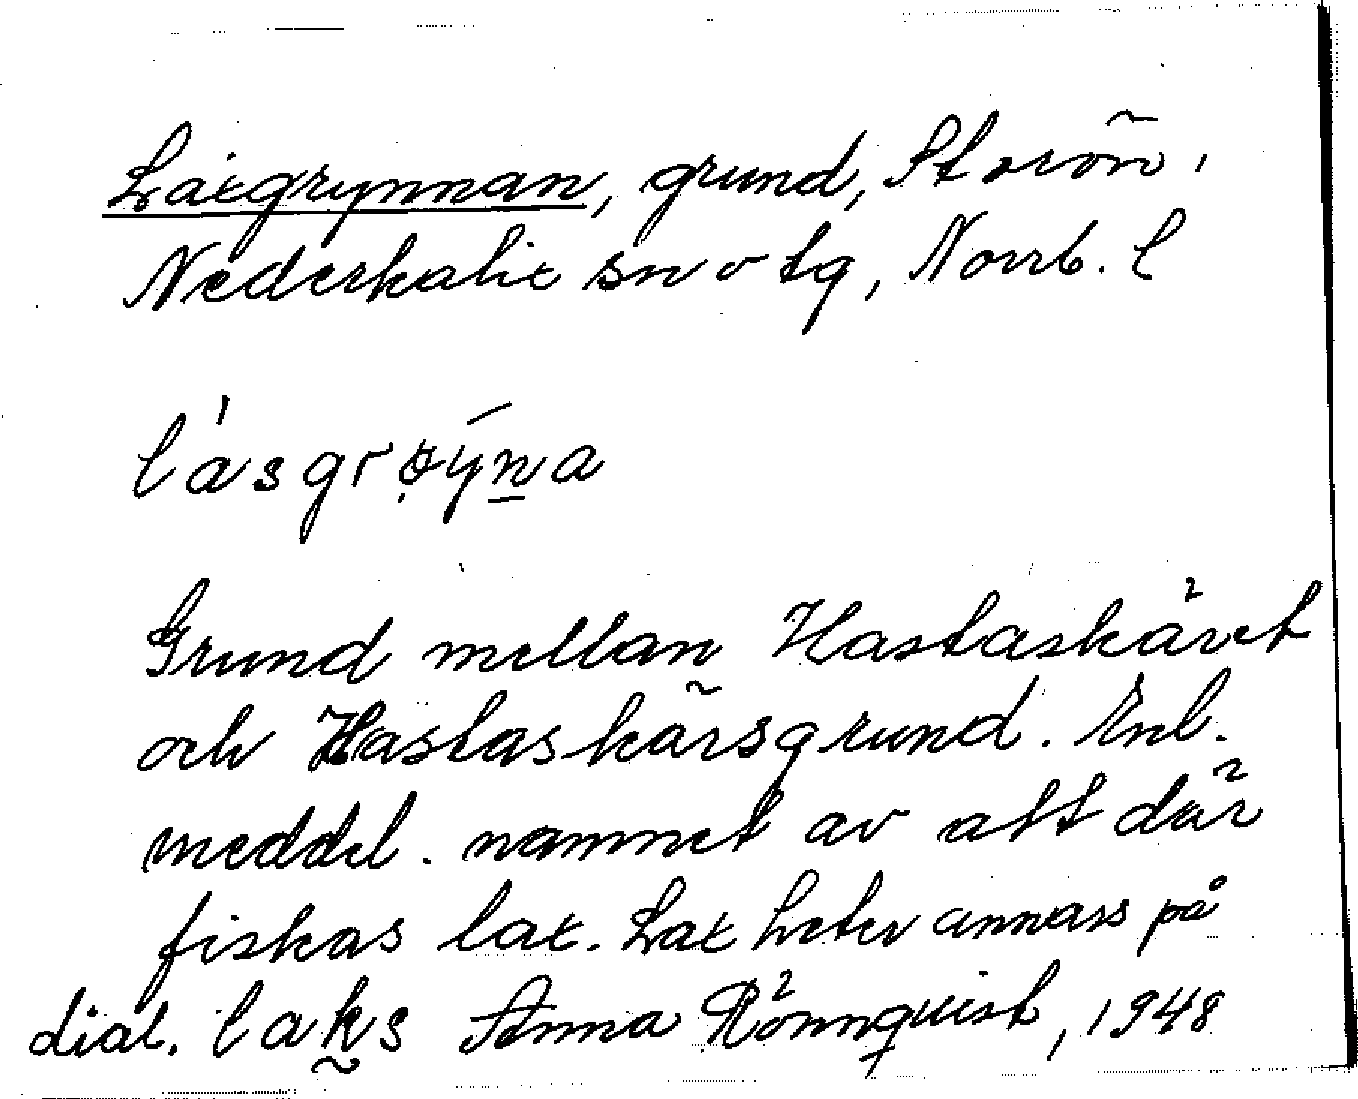 Laxgrynnan, grund, Storön,
Nederkalix sn o tg, Norrb. l
lásgrøýna
Grund mellan Hastaskäret
och Hastaskärsgrund. Enl.
meddel. namnet av att där
fiskas lax. Lax heter annars på
dial. laks Anna Rönnquist, 1948